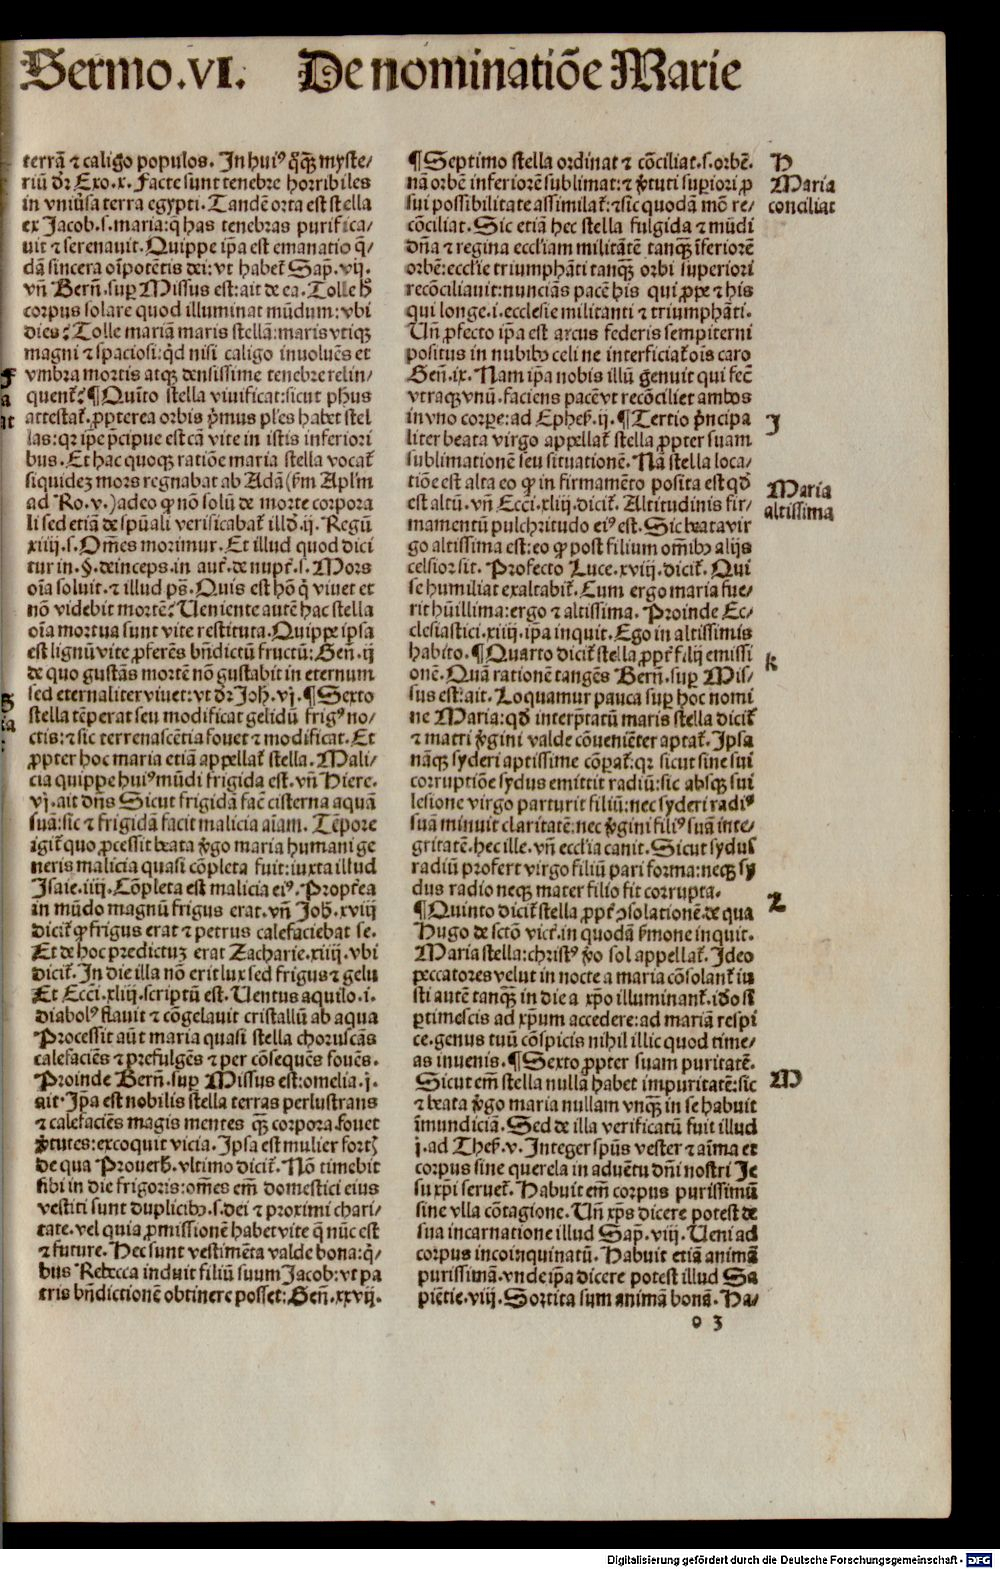 Sermo.VI. De nominatiōe Marie
terrā ⁊ caligo populos. In huiꝰ q̊qꝫ myste/
riū dr̄ Exo.x. Facte sunt tenebre horribiles
in vniūsa terra egypti. Tandē orta est stella
ex Jacob.s.maria: q̄ has tenebras purifica/
uit ⁊ serenauit. Quippe ip̄a est emanatio q̄/
dā sincera oīpotētis dei: vt habet᷑ Sap̄.vij.
vn̄ Bern̄.suꝑ Missus est: ait de ea. Tolle h̄
corpus solare quod illuminat mūdum: vbi
dies? Tolle mariā maris stellā: maris vtiqꝫ
magni ⁊ spaciosi: qd̄ nisi caligo inuoluēs et
vmbra mortis atqꝫ densissime tenebre relin/
quent᷑? ¶ Quīto stella viuificat: sicut phus
attestat᷑. ꝓpterea orbis p̄mus ples habet stel
las: qr ip̄e p̄cipue est cā vite in istis inferiori
bus. Et hac quoqꝫ ratiōe maria stella vocat᷑
siquidez mors regnabat ab Adā (ẜm Apl̄m
ad Ro.v.) adeo ꝙ nō solū de morte corpora
li sed etiā de spūali verificabat᷑ illd̄.ij. Regū
xiiij.s. Om̄es morimur. Et illud quod dici
tur in.§.deinceps.in aut̄.de nupt̄.s. Mors
oīa soluit. ⁊ illud ps̄. Quis est hō q̇ viuet et
nō videbit mortē? Ueniente autē hac stella
oīa mortua sunt vite restituta. Quippe ipsa
est lignū vite ꝓferēs bn̄dictū fructū: Gen̄.ij
de quo gustās mortē nō gustabit in eternum
sed eternaliter viuet: vt dr̄ Joh̄.vj. ¶ Sexto
stella tēperat seu modificat gelidū frigꝰ no/
ctis: ⁊ sic terrenascētia fouet ⁊ modificat. Et
ꝓpter hoc maria etiā appellat᷑ stella. Mali/
cia quippe huiꝰ mūdi frigida est. vn̄ Hiere.
vj. ait dn̄s Sicut frigidā fac̄ cisterna aquā
suā: sic ⁊ frigidā facit malicia aīam. Tēpore
igit᷑ quo ꝓcessit beata v̓go maria humani ge
neris malicia quasi cōpleta fuit: iuxta illud
Isaie.iiij. Cōpleta est malicia eiꝰ. Propt̄ea
in mūdo magnū frigus erat. vn̄ Joh̄.xviij
dicit᷑ ꝙ frigus erat ⁊ petrus calefaciebat se.
Et de hoc predictuꝫ erat Zacharie.xiiij. vbi
dicit᷑. In die illa nō erit lux sed frigus ⁊ gelu
Et Ecc̄i.xliij. scriptū est. Uentus aquilo.i.
diabolꝰ flauit ⁊ cōgelauit cristallū ab aqua
Processit aūt maria quasi stella choruscās
calefaciēs ⁊ prefulgēs ⁊ per cōsequēs fouēs.
Proinde Bern̄.suꝑ Missus est: omelia.j.
ait. Ip̄a est nobilis stella terras perlustrans
⁊ calefaciēs magis mentes qꝫ̄ corpora. fouet
v̓tutes: excoquit vicia. Ipsa est mulier fortꝭ
de qua Prouerb̄.vltimo dicit᷑. Nō timebit
sibi in die frigoris: om̄es em̄ domestici eius
vestiti sunt duplicibꝫ.s.dei ⁊ proximi chari/
tate. vel quia ꝓmissionē habet vite q̄ nūc est
⁊ future. Hec sunt vestimēta valde bona: q̇/
bus Rebecca induit filiū suum Jacob: vt pa
tris bn̄dictionē obtinere posset: Gen̄.xxvij.
¶ Septimo stella ordinat ⁊ cōciliat.s.orbē.
nā orbē inferiorē sublimat: ⁊ v̓tuti superiori ꝓ
sui possibilitate assimilat᷑: ⁊ sic quodā mō re/
cōciliat. Sic etiā hec stella fulgida ⁊ mūdi
dn̄a ⁊ regina eccl̄iam militātē tanqꝫ̄ īferiorē
orbē: eccl̄ie triumphāti tanqꝫ̄ orbi superiori
recōciliauit: nuncians pacē his qui ꝓpe ⁊ his
qui longe.i.ecclesie militanti ⁊ triumphāti.
Un̄ ꝓfecto ip̄a est arcus federis sempiterni
positus in nubibꝫ celi ne interficiat᷑ oīs caro
Gen̄.ix. Nam ip̄a nobis illū genuit qui fec̄
vtraqꝫ vnū. faciens pacē vt recōciliet ambos
in vno corpe: ad Ephes̄.ij. ¶ Tertio p̄ncipa
liter beata virgo appellat᷑ stella ꝓpter suam
sublimationē seu situationē. Nā stella loca/
tiōe est alta eo ꝙ in firmamēto posita est qd̄
est altū. vn̄ Ecc̄i.xliij.dicit᷑. Altitudinis fir/
mamentū pulchritudo eiꝰ est. Sic beata vir
go altissima est: eo ꝙ post filium om̄ibꝫ alijs
celsior sit. Profecto Luce.xviij.dicit᷑. Qui
se humiliat exaltabit᷑. Cum ergo maria fue/
rit hūillima: ergo ⁊ altissima. Proinde Ec/
clesiastici.xiiij. ip̄a inquit. Ego in altissimis
habito. ¶ Quarto dicit᷑ stella ꝓpt̄ filij emissi
onē. Quā rationē tangēs Bern̄.suꝑ Mis/
sus est: ait. Loquamur pauca suꝑ hoc nomi
ne Maria: qd̄ interp̄tatū maris stella dicit᷑
⁊ matri v̓gini valde cōueniēter aptat᷑. Ipsa
nāqꝫ syderi aptissime cōꝑat᷑: qr sicut sine sui
corruptiōe sydus emittit radiū: sic absqꝫ sui
lesione virgo parturit filiū: nec syderi radiꝰ
suā minuit claritatē: nec v̓gini filiꝰ suā inte/
gritatē. hec ille. vn̄ eccl̄ia canit. Sicut sydus
radiū profert virgo filiū pari forma: neqꝫ sy
dus radio neqꝫ mater filio fit corrupta.
¶ Quinto dicit᷑ stella ꝓpt̄ ↄsolationē. de qua
Hugo de sctō vict̄. in quodā ẜmone inquit.
Maria stella: christꝰ v̓o sol appellat᷑. Ideo
peccatores velut in nocte a maria cōsolant᷑ iu
sti autē tanqꝫ̄ in die a xp̄o illuminant᷑. id̄o si
ꝑtimescis ad xp̄um accedere: ad mariā respi
ce. genus tuū cōspicis nihil illic quod time/
as inuenis. ¶ Sexto ꝓpter suam puritatē.
Sicut em̄ stella nullā habet impuritatē: sic
⁊ beata v̓go maria nullam vnqꝫ̄ in se habuit
īmundiciā. Sed de illa verificatū fuit illud
j. ad Thes̄.v. Integer spūs vester ⁊ aīma et
corpus sine querela in aduētu dn̄i nostri Je
su xp̄i seruet᷑. Habuit em̄ corpus purissimū
sine vlla cōtagione. Un̄ xp̄s dicere potest de
sua incarnatione illud Sap̄.viij. Ueni ad
corpus incoinquinatū. Habuit etiā animā
purissimā. vnde ip̄a dicere potest illud Sa
piētie.viij. Sortita sum animā bonā. Ha/
o 3
H
Maria
conciliat
J
Maria
altissima
k
L
M
Digitalisierung gefördert durch die Deutsche Forschungsgemeinschaft - DFG